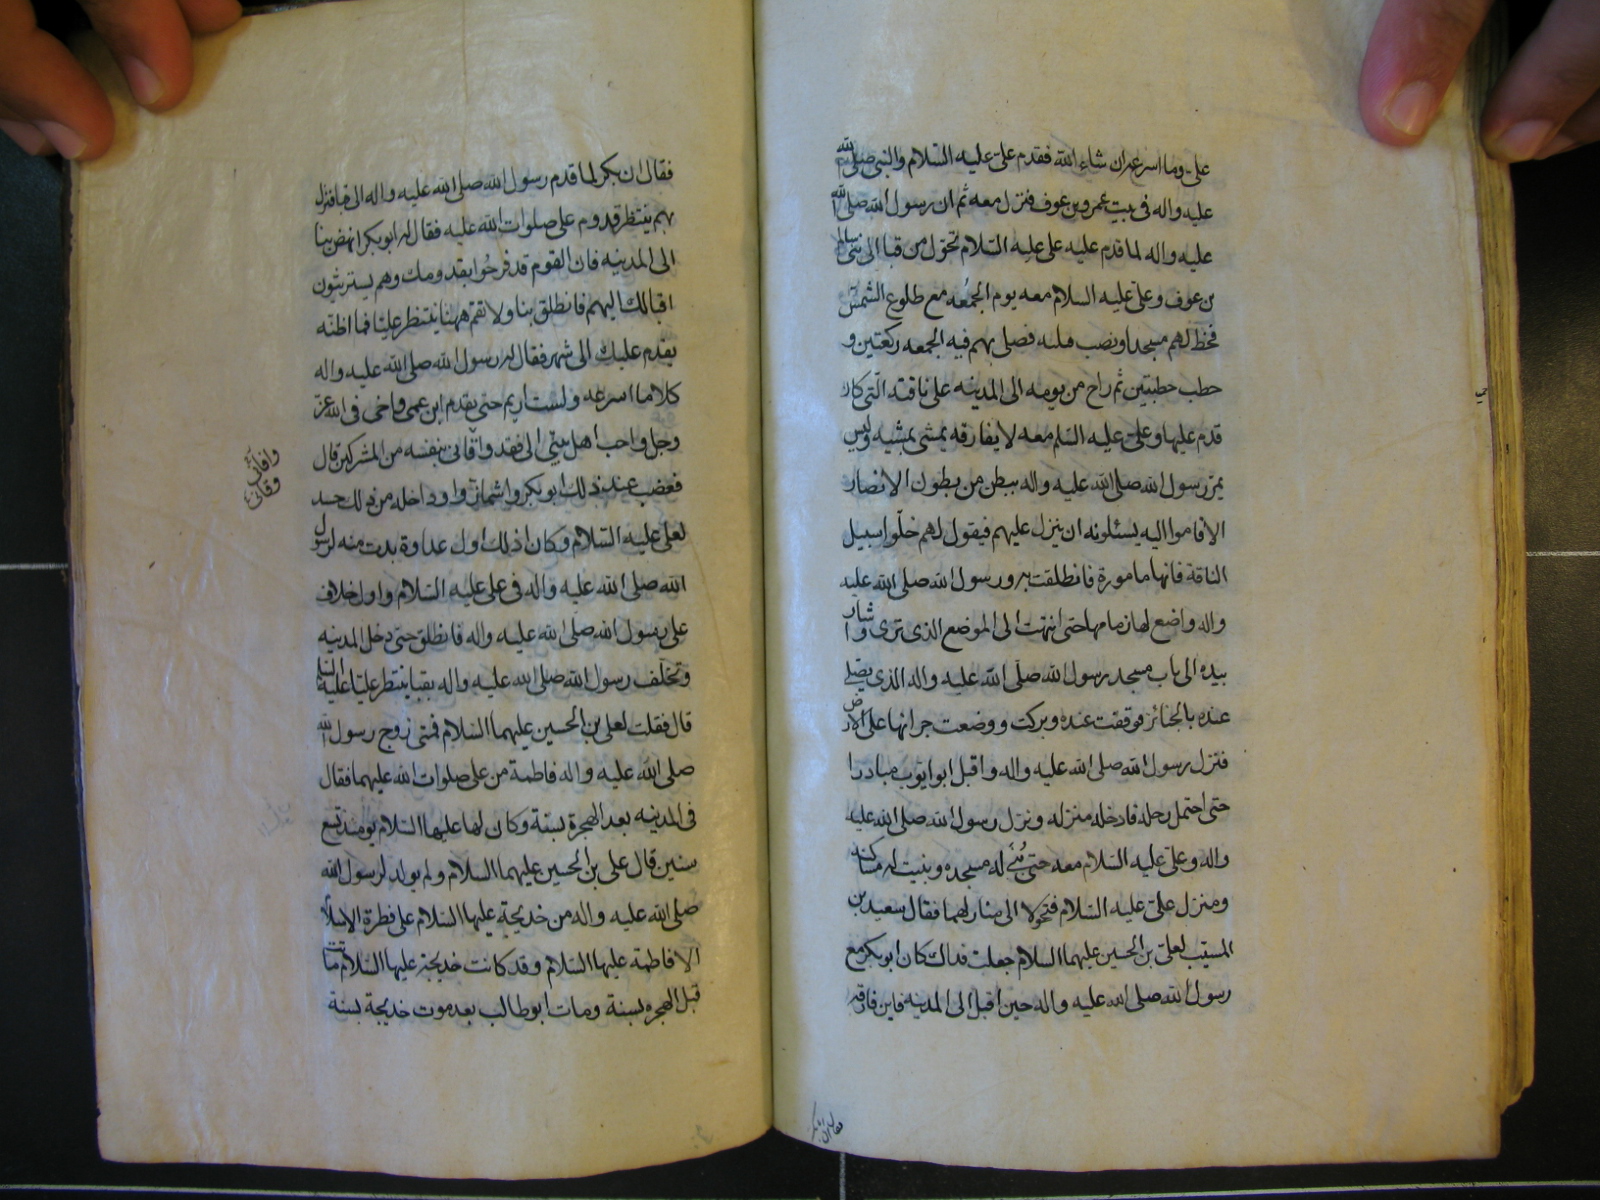 علىّ وما اسرعه ان شاء الله فقدم علىّ عليه السّلام والنبى صلى الله
عليه واله فى بيت عمرو بن عوف فنزل معه ثم ان رسول الله صلى الله
عليه واله لما قدم عليه على عليه السّلام تحوّل من قبا الى بنى سالم
بن عوف وعلىّ عليه السلام معه يوم الجمُعه مع طلوع الشمس
فخط لهم مسجدا ونصب قبلته فصلى بهم فيه الجمعه ركعتين و
خطب خطبتين ثم راح من يومه الى المدينه على ناقته الّتى كان
قدم عليها وعلىّ عليه السّلم معه لا يفارقه يمشى بمشيه وليس
يمرّ رسول الله صلى الله عليه واله ببطن من بطون الانصار
الا قاموا اليه يسئلونه ان ينزل عليهم فيقول لهم خلّوا سبيل
الناقة فانها مامورة فانطلقت به ورسول الله صلى الله عليه
واله واضع لها زمامها حتى انتهت الى الموضع الذى ترى واشار
بيده الى باب مسجد رسول الله صلّى الله عليه واله الذى يصلى
عنده بالجنائز فوقفت عنده وبركت ووضعت جرانها على الارض
فنزل رسول الله صلى الله عليه واله واقبل ابو ايّوب مبادرا
حتى احتمل رحله فادخله منزله ونزل رسول الله صلى الله عليه
واله وعلىّ عليه السّلام معه حتى بُنى له مسجده وبنيت له مساكنه
ومنزل علىّ عليه السّلام فتحولا الى منازلهما فقال سعيد بن
المسيّب لعلىّ بن الحسين عليهما السلام جعلت فداك كان ابو بكر مع
رسول الله صلى الله عليه واله حين اقبل الى المدينه فاين فارقه
فقال ان ابا بكر
فقال ان بكر لما قدم رسول الله صلى الله عليه واله الى قبا فنزل
بهم ينتظر قدوم على صلوات الله عليه فقال له ابو بكر انهض بنا
الى المدينه فان القوم قد فرحُوا بقدومك وهم يستريثون
اقبالك اليهم فانطلق بنا ولا تقم ههنا ينتظر عليّا فما اظنّه
يقدم عليك الى شهر فقال له رسول الله صلى الله عليه واله
كلا ما اسرعه ولست اريم حتى يقدم ابن عمى واخى فى الله عزّ
وجل واحب اهل بيتى الى فقد واقانى بنفسه من المشركين قال
وافانى
وقانى
فغضب عند ذلك ابو بكر واشمازّ واوداخله من ذلك حسد
لعلى عليه السّلام وكان اذلك اول عداوة بدت منه لرسول
الله صلى الله عليه واله فى على عليه السّلام واول خلاف
على رسول الله صلى الله عليه واله فانطلق حتّى دخل المدينه
وتخلّف رسول الله صلى الله عليه واله بقبا ينتظر عليّا عليه السلم
قال فقلت لعلى بن الحسين عليهما السّلام فمتى زوج رسول الله
صلى الله عليه واله فاطمة من على صلوات الله عليهما فقال
فى المدينه بعد الهجرة بسنة وكان لها عليها السّلام يومئذ تسع
سنين قال على بن الحسين عليهما السلام ولم يولد لرسول الله
صلى الله عليه واله من خديجة عليها السّلام على فطرة الاسلام
الا فاطمة عليها السّلام وقد كانت خديجة عليها السّلام ماتت
قبل الهجره بسنة ومات ابو طالب بعد موت خديجة بسنة